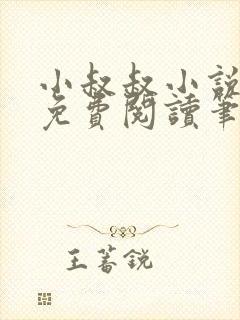 小叔叔小說
免費閱讀筆
王蕃銳